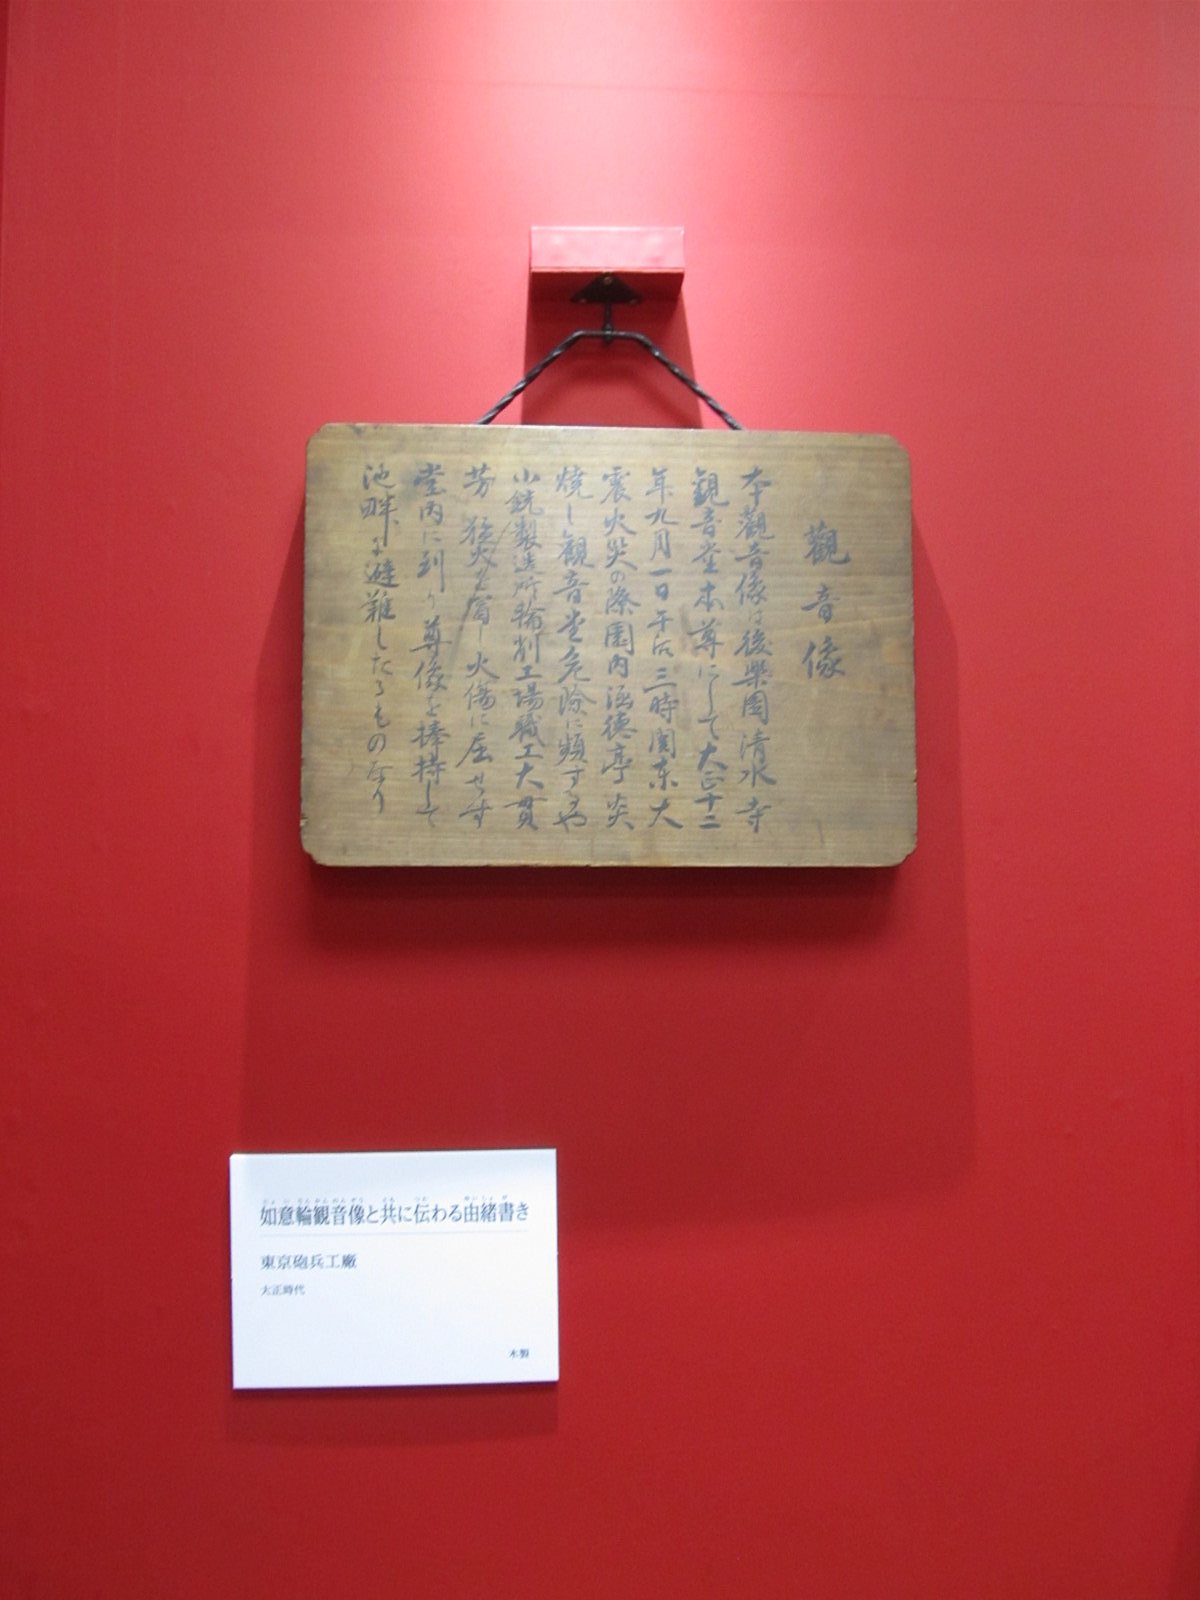 觀音像
本觀音像は後樂園清水寺
観音堂本尊にして大正十二
年九月一日午后三時関東大
震火災の際園内涵德亭炎
焼し観音堂危険に頻するや
小銃製造所輪削工場職工大貫
芳猛火を冒し火傷に屈せす
堂内に到り尊像を捧持して
池畔に避難したるものなり
如意輪観音像と共に伝わる由緒書き
東京砲兵工廠
大正時代
木製